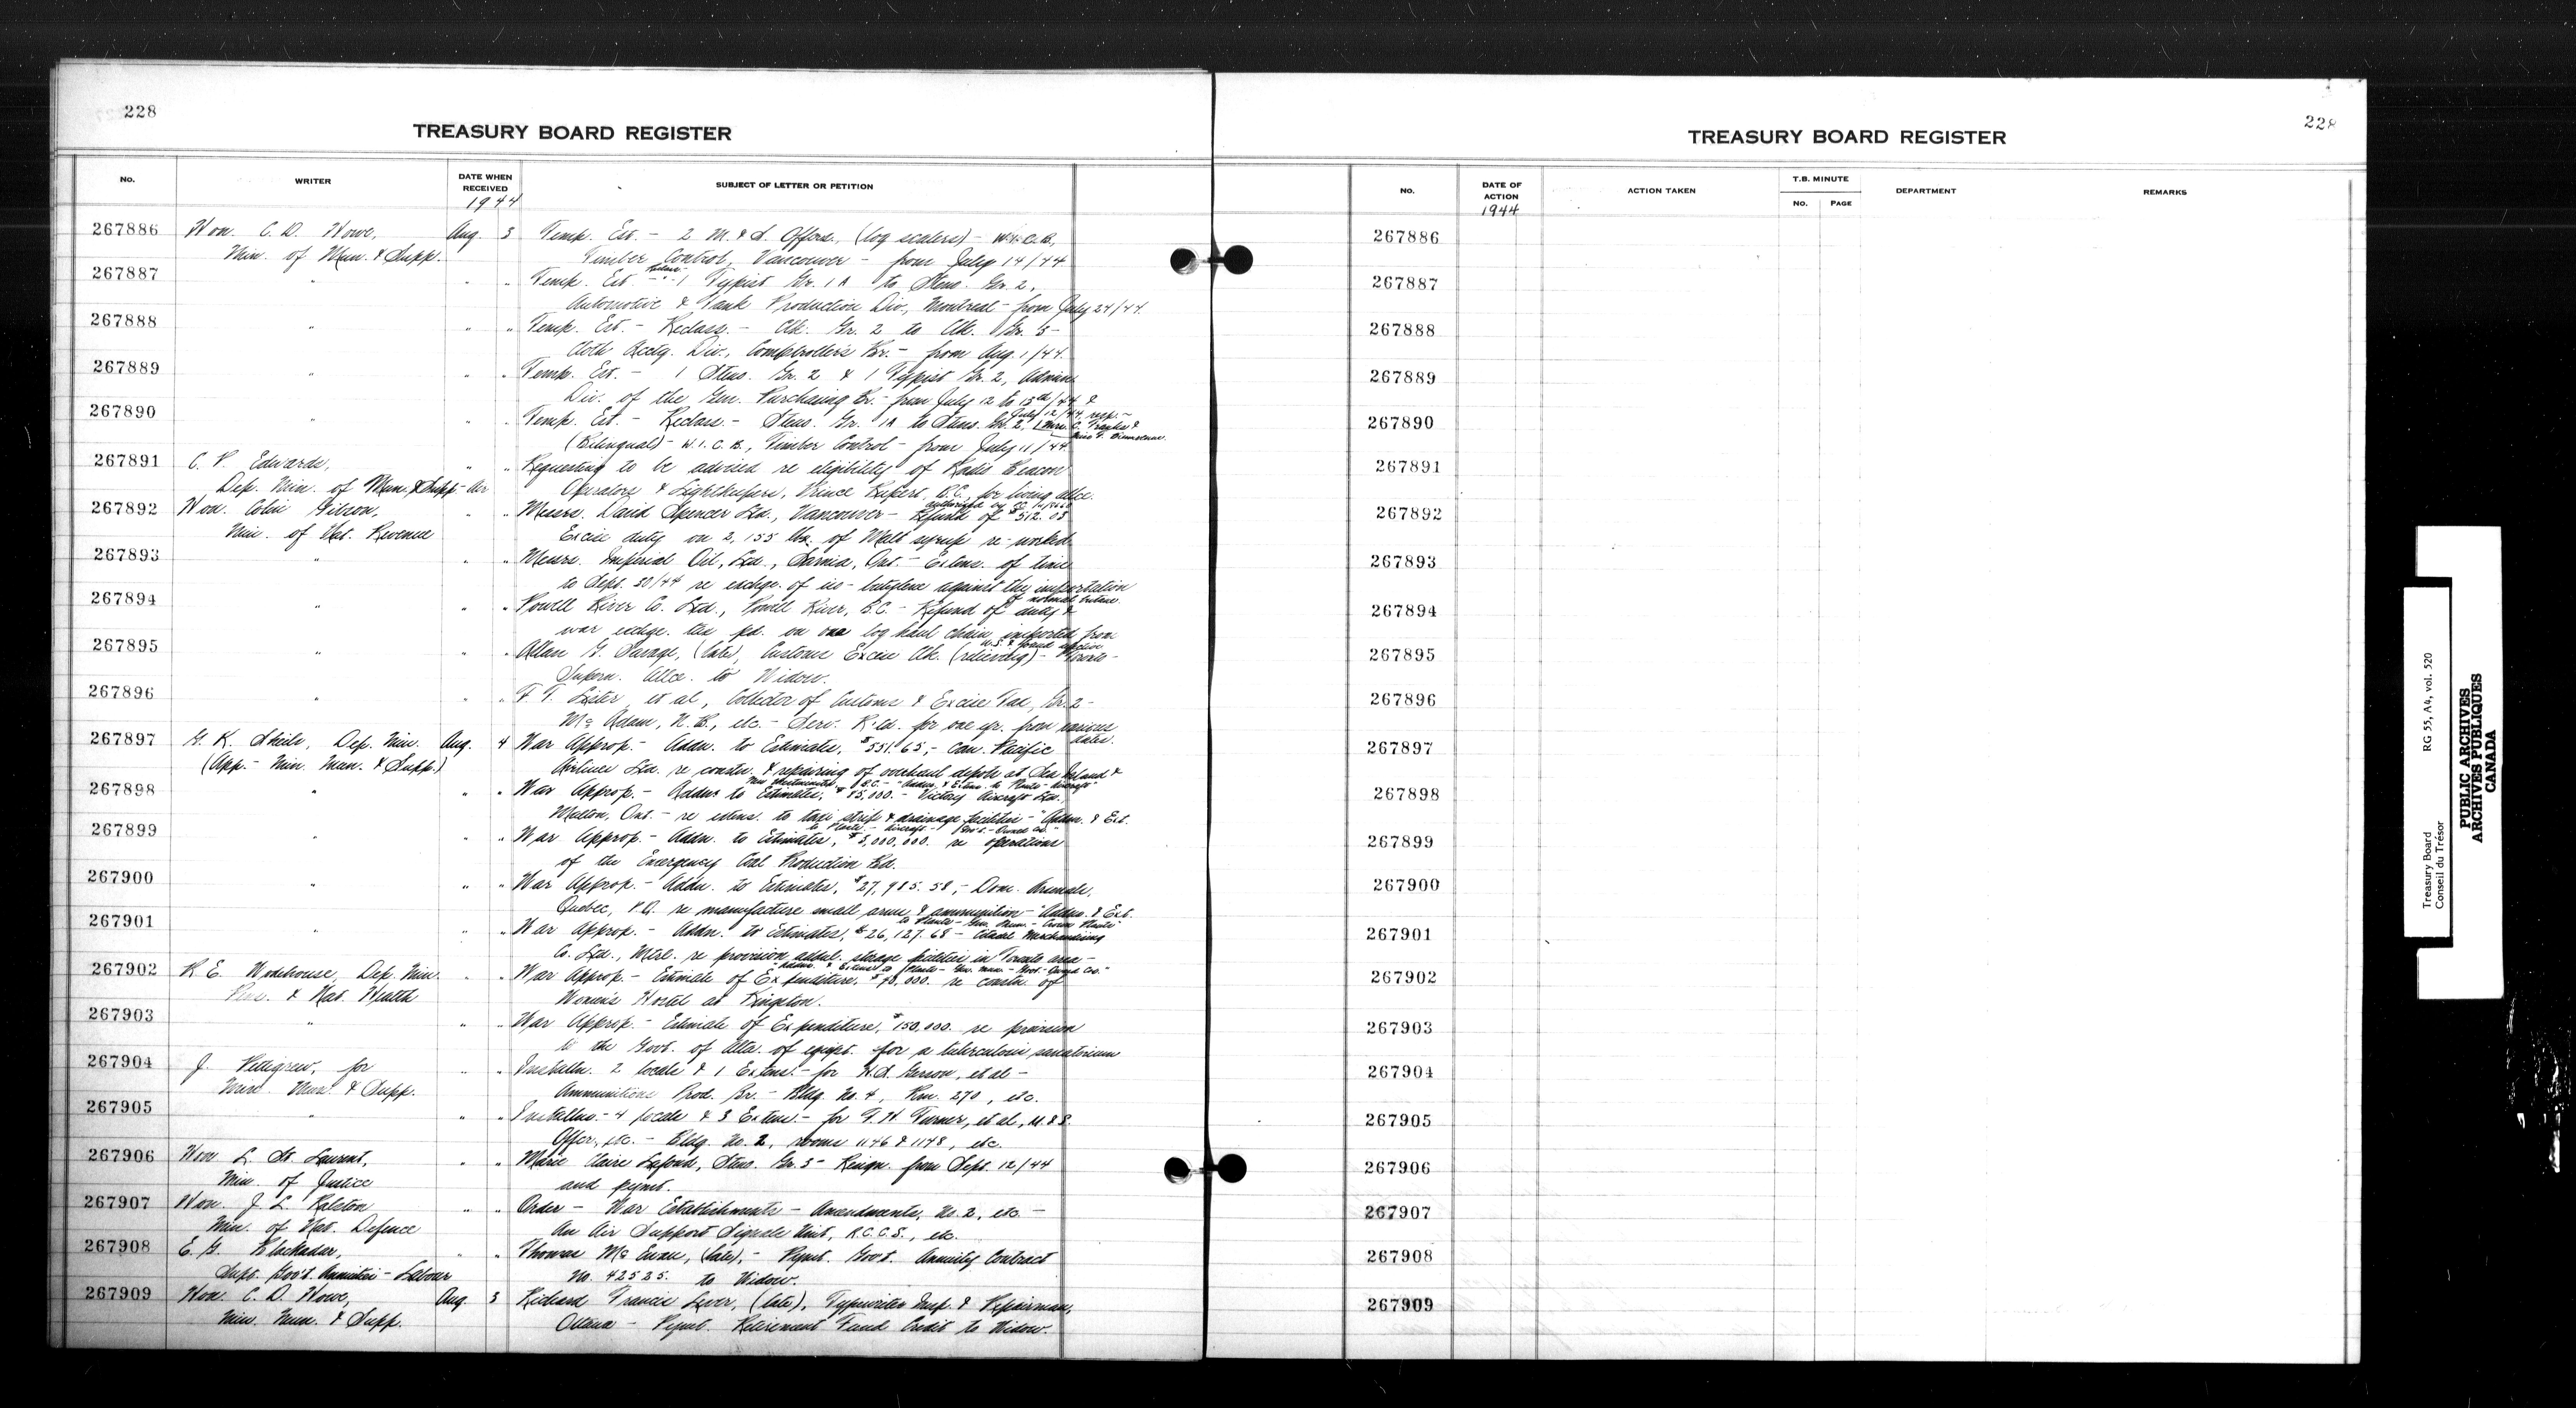 228
TREASURY BOARD REGISTER
No.
WRITER
DATE WHEN RECEIVED
1944
SUBJECT OF LETTER OR PETITION
267886 Hon. C. D. Howe, Aug. 3 Temp. Est. - 2 M. & S. Offcrs., (log scalers) - W.I.C.B.,
Min. of Mun. & Supp. Timber Control, Vancouver - from July 14/44
267887 " " " Temp. Est. - Reclass. - 1 Typist Gr. 1A to Steno. Gr. 2,
Automotive & Tank Production Div., Montreal - from July 24/44.
267888 " " " Temp. Est. - Reclass. - Clk. Gr. 2 to Clk. Gr. 3 -
Cloth Acctg. Div., Comptroller's Br. - from Aug. 1/44.
267889 " " " Temp. Est. - 1 Steno. Gr. 2 & 1 Typist Gr. 2, Admin.
Div. of the Gen. Purchasing Br. - from July 12 to 13th/44 &
July 12/44, resp. -
267890 " " Temp. Est. - Reclass. - Steno. Gr. 1A to Steno. Gr. 2, 1 Mrs. C. &
(Bilingual) - W.I.C.B., Timber Control - from July 11/44.
267891 C. P. Edwards, " " Requesting to be advised re eligibility of Radio Beacon
Dep. Min. of Mun. & Supp - Air Operators & Lightkeepers, Prince Rupert, B.C., for living allce.
267892 Hon. Colin Gibson, " " Messrs. David Spencer Ltd., Vancouver - Refund of $512.03
Min. of Nat. Revenue Excise duty on 2,155 lbs. of Malt syrup re-worked
267893 " " " Messrs. Imperial Oil, Ltd., Sarnia, Ont. - Extens. of time
to Sept. 30/44 re exchge. of iso-butylene against the importation
of normal butane.
267894 " " " Powell River Co. Ltd., Powell River, B.C. - Refund of duty &
war exchge. tax pd. on one log haul chain imported from
U.S. & found defective
267895 " " " Allan G. Savage, (late), Customs Excise Clk. (relieving) - Toronto -
Supern. Allce. to Widow.
267896 " " " F. T. Lister, et al, Collector of Customs & Excise Tax, Gr. 2 -
Mc Adam, N.B., etc. - Serv. R'td. for one yr. from various
dates.
267897 G. K. Sheils, Dep. Min. Aug. 4 War Approp. - Addn. to Estimates, $551.65, - Can. Pacific
(App. - Min. Mun. & Supp.) Airlines Ltd. re constn. & repairing of overhaul depots at Sea Island &
New Westminster, B.C. - "Addns. & Extens. to Plants - Aircraft"
267898 " " " War Approp. - Addn. to Estimates, $85,000. - Victory Aircraft Ltd.,
Malton, Ont. - re extens. to taxi strip & drainage facilities - "Addns. & Ext.
to Plants - Aircraft - Gov't. - Owned Co."
267899 " " " War Approp. - Addn. to Estimates, $5,000,000. re operations
of the Emergency Coal Production Bd.
267900 " " " War Approp. - Addn. to Estimates, $27,985.58, - Dom. Arsenals,
Quebec, P.Q. re manufacture small arms & ammunition - "Addns. & Ext.
to Plants - Gen. Mun. - Crown Plants"
267901 " " " War Approp. - Addn. to Estimates, $26,127.68 - Citadel Merchandising
Co. Ltd., Mtrl. re provision addnl. storage facilities in Toronto area -
"Addns. & Extens. to Plants - Gen. Mun. - Govt. - Owned Co."
267902 R. E. Wodehouse, Dep. Min. " " War Approp. - Estimate of Expenditure, $90,000. re constn. of
Pens. & Nat. Health Women's Hostel at Kingston.
267903 " " " War Approp. - Estimate of Expenditure, $150,000. re provision
to the Govt. of Alta. of equipt. for a tuberculosis sanatorium
267904 J. Pettigrew, for " " Installn. 2 locals & 1 Extens. - for H.S. Gerson, et al -
Min. Mun. & Supp. Ammunitions Prod. Br. - Bldg. No. 4, Rm. 270, etc.
267905 " " " Installns. - 4 locals & 3 Extens. - for F. H. Turner, et al, M. & S.
Offcr., etc. - Bldg. No. 2, rooms 1146 & 1148, etc.
267906 Hon L. St Laurent, " " Marie Claire Lafond, Steno. Gr. 3 - Resign. from Sept. 12/44
Min. of Justice and pymt.
267907 Hon. J. L. Ralston " " Order - War Establishments - Amendments, No. 2, etc. -
Min. of Nat. Defence An Air Support Signals Unit, R.C.C.S., etc.
267908 E. G. Blackadar, " " Thomas Mc Ewan, (late), - Pymt. Govt. Annuity Contract
Supt. Gov't. Annuities - Labour No. 42525. to Widow.
267909 Hon. C. D. Howe, Aug. 3 Richard Francis Lever, (late), Typewriter Insp. & Repairman,
Min. Mun. & Supp. Ottawa - Pymt. Retirement Fund Credit to Widow.
228
TREASURY BOARD REGISTER
No.
DATE OF ACTION
1944
ACTION TAKEN
T.B. MINUTE
No.
PAGE
DEPARTMENT
REMARKS
267886
267887
267888
267889
267890
267891
267892
267893
267894
267895
267896
267897
267898
267899
267900
267901
267902
267903
267904
267905
267906
267907
267908
267909
Treasury Board RG 55, A4, vol. 520
Conseil du Trésor
PUBLIC ARCHIVES
ARCHIVES PUBLIQUES
CANADA